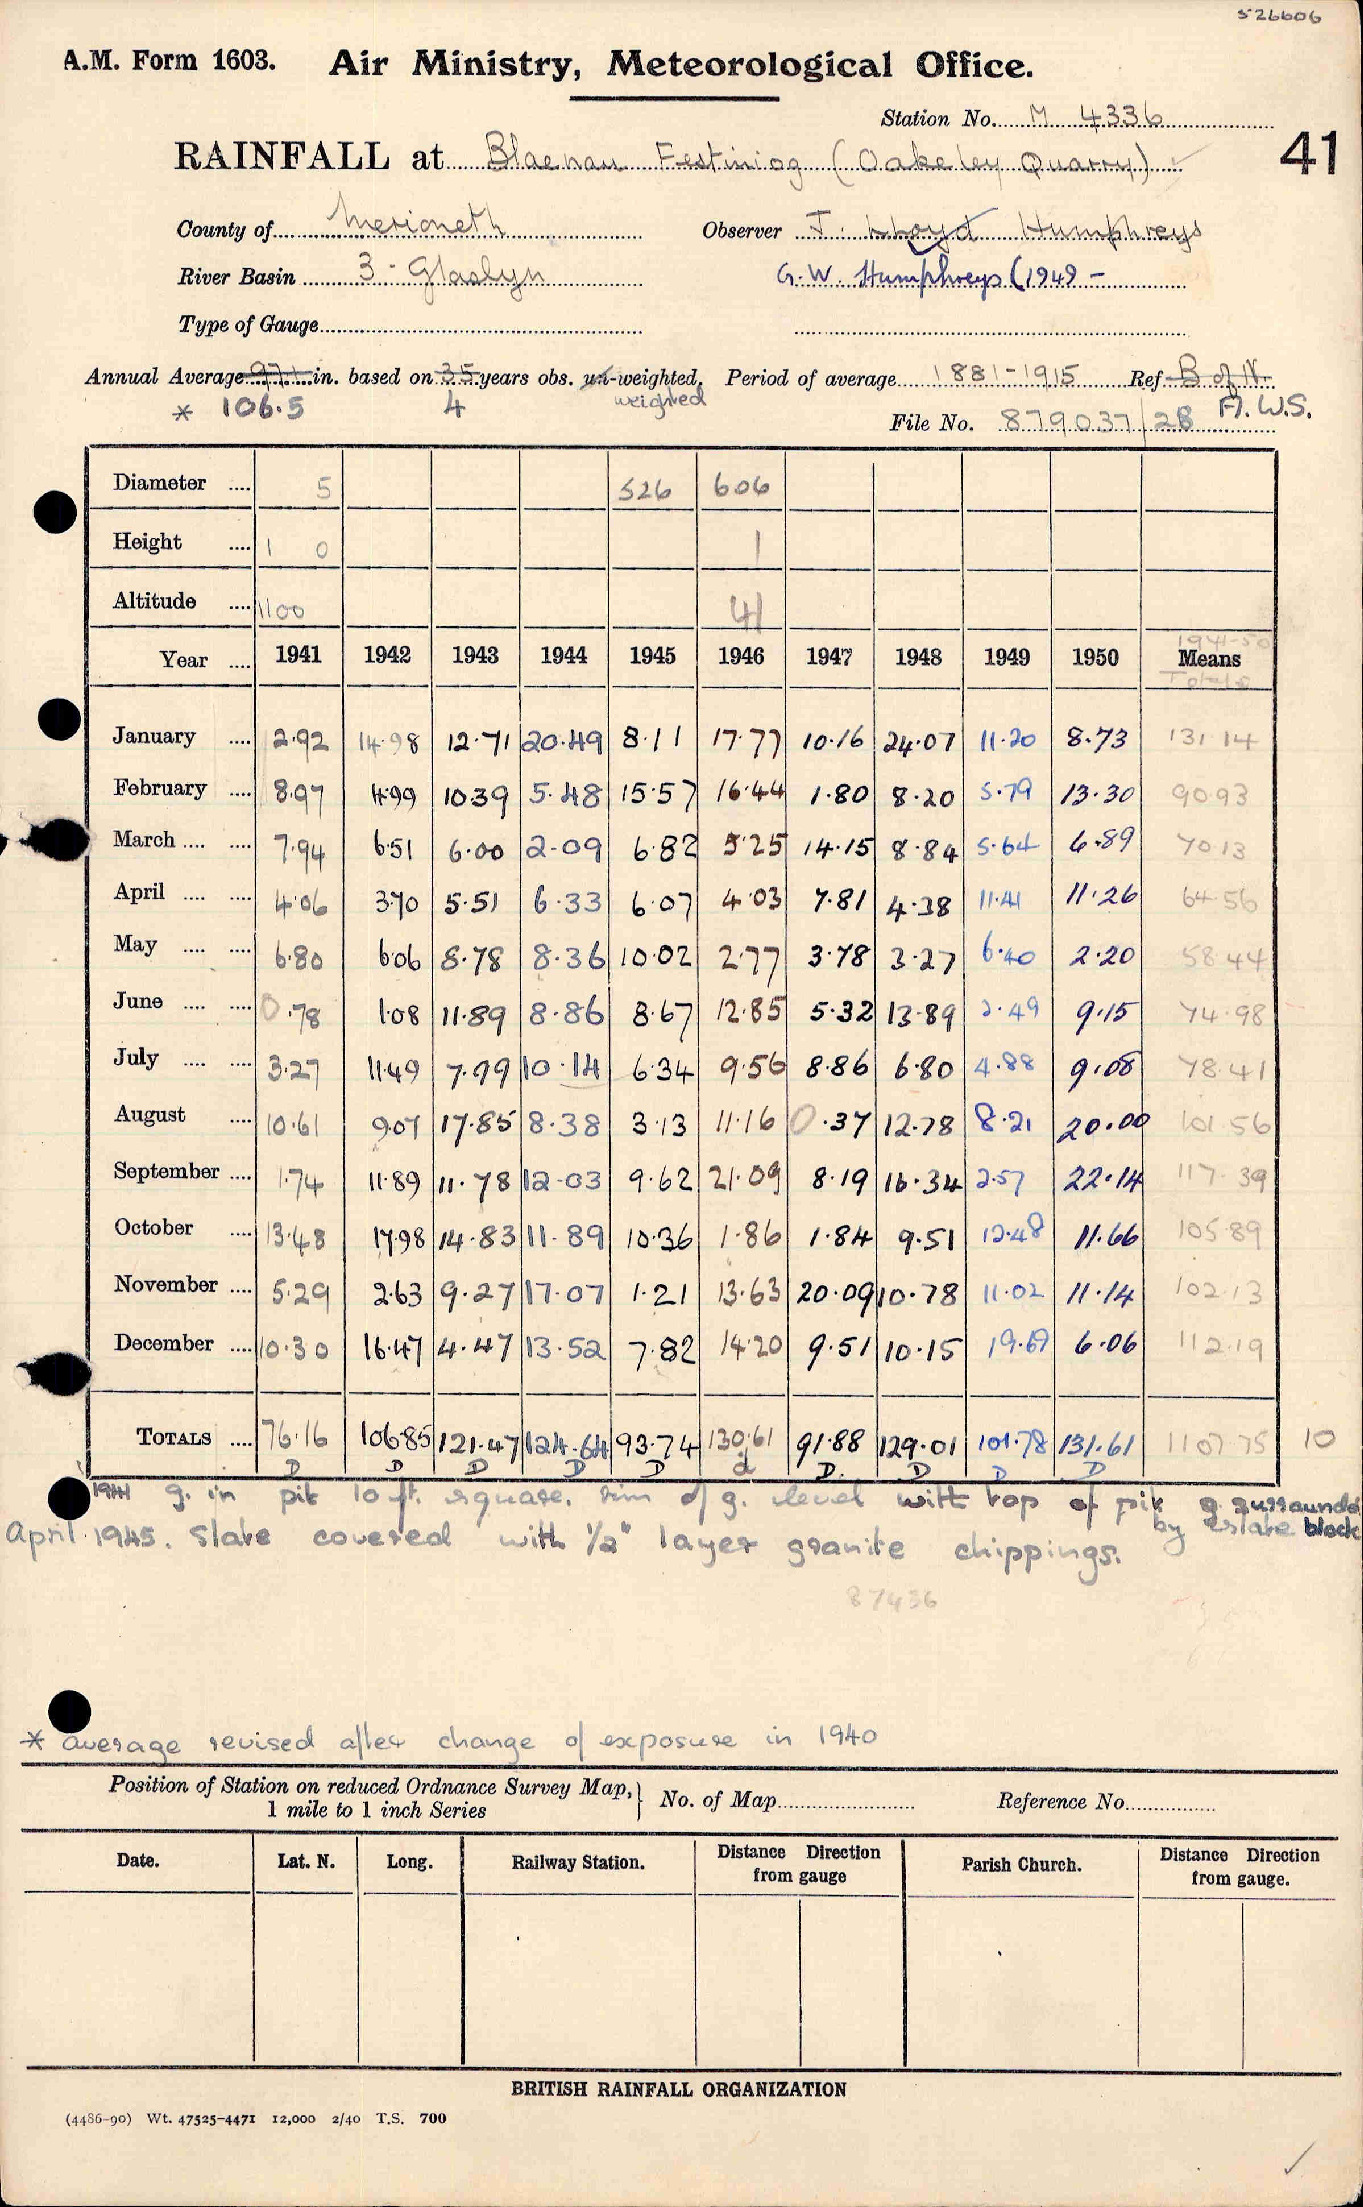 526606
A.M. Form 1603. Air Ministry, Meteorological Office.
Station No. M 4336
41
RAINFALL at Blaenau Festiniog (Oakeley Quarry)
County of Merioneth Observer J. Lloyd Humphreys
River Basin 3 - Glaslyn G.W. Humphreys (1949 -
Type of Gauge
Annual Average 97.1 in. based on 35 years obs. un-weighted. Period of average 1881-1915 Ref B of N.
* 106.5 4 weighted A.W.S.
File No. 879037/28
Diameter .... 5 526 606
Height .... 1 0 1
Altitude .... 1100 41
1941-50
Year .... 1941 1942 1943 1944 1945 1946 1947 1948 1949 1950 Means
Totals
January .... 2.92 14.98 12.71 20.49 8.11 17.77 10.16 24.07 11.20 8.73 131.14
February .... 8.97 4.99 10.39 5.48 15.57 16.44 1.80 8.20 5.79 13.30 90.93
March .... .... 7.94 6.51 6.00 2.09 6.82 5.25 14.15 8.84 5.64 6.89 70.13
April .... .... 4.06 3.70 5.51 6.33 6.07 4.03 7.81 4.38 11.41 11.26 64.56
May .... .... 6.80 6.06 8.78 8.36 10.02 2.77 3.78 3.27 6.40 2.20 58.44
June .... .... 0.78 1.08 11.89 8.86 8.67 12.85 5.32 13.89 2.49 9.15 74.98
July .... .... 3.27 11.49 7.99 10.14 6.34 9.56 8.86 6.80 4.88 9.08 78.41
August .... 10.61 9.07 17.85 8.38 3.13 11.16 0.37 12.78 8.21 20.00 101.56
September .... 1.74 11.89 11.78 12.03 9.62 21.09 8.19 16.34 2.57 22.14 117.39
October .... 13.48 17.98 14.83 11.89 10.36 1.86 1.84 9.51 12.48 11.66 105.89
November .... 5.29 2.63 9.27 17.07 1.21 13.63 20.09 10.78 11.02 11.14 102.13
December .... 10.30 16.47 4.47 13.52 7.82 14.20 9.51 10.15 19.69 6.06 112.19
TOTALS .... 76.16 106.85 121.47 124.64 93.74 130.61 91.88 129.01 101.78 131.61 1107.75 10
D D D D D d D. D D D
1941 g. in pit 10 ft. square. rim of g. level with top of pit g. surrounded
by slate block
April 1945. Slate covered with 1/2" layer granite chippings.
87436
* average revised after change of exposure in 1940
Position of Station on reduced Ordnance Survey Map, 1 mile to 1 inch Series } No. of Map Reference No.
Date. Lat. N. Long. Railway Station. Distance Direction from gauge Parish Church. Distance Direction from gauge.
BRITISH RAINFALL ORGANIZATION
(4486-90) Wt. 47525-4471 12,000 2/40 T.S. 700